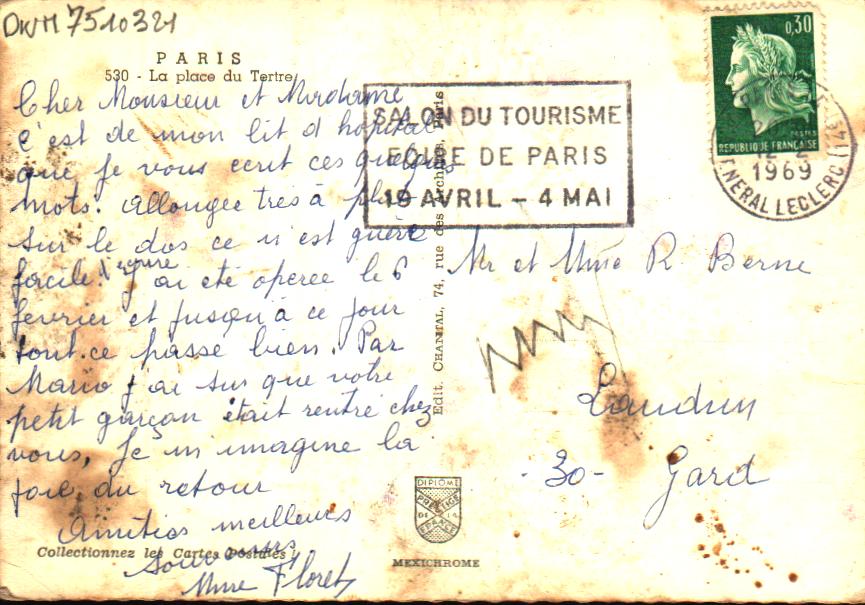 DWM 7510321
PARIS
530 - La place du Tertre
Cher Monsieur et Madame
c'est de mon lit d hopital
que je vous ecrit ces quelques
mots. Allongee très à plat
sur le dos ce n'est guère
facile d'ecrire. J ai ete operee le 6
fevrier et jusqu'à ce jour
tout ce passe bien. Par
Mario j ai sus que votre
petit garçon était rentré chez
vous, Je m imagine la
joie du retour
Amitiés meilleurs
souvenirs
Mme Floret
Collectionnez les Cartes Postales !
Edit. CHANTAL, 74, rue des Archives, Paris
DIPLOME
PRESTIGE
DE LA
FRANCE
MEXICHROME
SALON DU TOURISME
FOIRE DE PARIS
19 AVRIL - 4 MAI
0,30
POSTES
REPUBLIQUE FRANÇAISE
12-2
1969
GENERAL LECLERC (14E)
Mr et Mme R. Berne
Laudun
-30- Gard